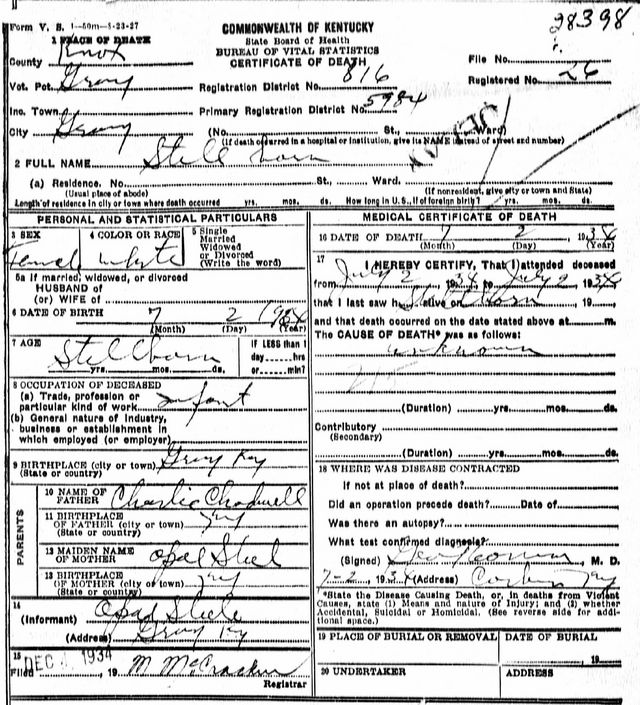 Form V. S. 1-50m-5-23-27
COMMONWEALTH OF KENTUCKY
State Board of Health
BUREAU OF VITAL STATISTICS
CERTIFICATE OF DEATH
28398
1 PLACE OF DEATH
County Knox
File No.
Vot. Pct. Gray
Registration District No. 816
Registered No. 26
Inc. Town
Primary Registration District No. 5984
City Gray (No. St., Ward)
(If death occurred in a hospital or institution, give its NAME instead of street and number)
2 FULL NAME Stell born
(a) Residence. No. St., Ward.
(Usual place of abode) (If nonresident, give city or town and State)
Length of residence in city or town where death occurred yrs. mos. ds. How long in U.S., if of foreign birth? yrs. mos. ds.
PERSONAL AND STATISTICAL PARTICULARS
3 SEX
Femal
4 COLOR OR RACE
white
5 Single
Married
Widowed
or Divorced
(Write the word)
5a If married, widowed, or divorced
HUSBAND of
(or) WIFE of
6 DATE OF BIRTH 7 2 1934
(Month) (Day) (Year)
7 AGE
Stellborn
yrs. mos. ds.
IF LESS than 1
day hrs
or min.?
8 OCCUPATION OF DECEASED
(a) Trade, profession or
particular kind of work infant
(b) General nature of industry,
business or establishment in
which employed (or employer)
9 BIRTHPLACE (city or town) Gray Ky
(State or country)
PARENTS
10 NAME OF
FATHER Charlie Chadwell
11 BIRTHPLACE
OF FATHER (city or town) Ky
(State or country)
12 MAIDEN NAME
OF MOTHER Opal Steel
13 BIRTHPLACE
OF MOTHER (city or town) Ky
(State or country)
14
(Informant) Opal Steele
(Address) Gray Ky
15
Filed DEC 1 1934, 19 M McCracken
Registrar
MEDICAL CERTIFICATE OF DEATH
16 DATE OF DEATH 7 2 1934
(Month) (Day) (Year)
17
I HEREBY CERTIFY, That I attended deceased
from July 2 1934 to July 2 1934
that I last saw h alive on Stillborn, 19
and that death occurred on the date stated above at m.
The CAUSE OF DEATH* was as follows:
unknown
(Duration) yrs. mos. ds.
Contributory
(Secondary)
(Duration) yrs. mos. ds.
18 WHERE WAS DISEASE CONTRACTED
If not at place of death?
Did an operation precede death? Date of
Was there an autopsy?
What test confirmed diagnosis?
(Signed) M. D.
7-2, 1934 (Address) Corbin Ky
*State the Disease Causing Death, or, in deaths from Violent
Causes, state (1) Means and nature of Injury; and (2) whether
Accidental, Suicidal or Homicidal. (See reverse side for addi-
tional space.)
19 PLACE OF BURIAL OR REMOVAL
DATE OF BURIAL
19
20 UNDERTAKER
ADDRESS